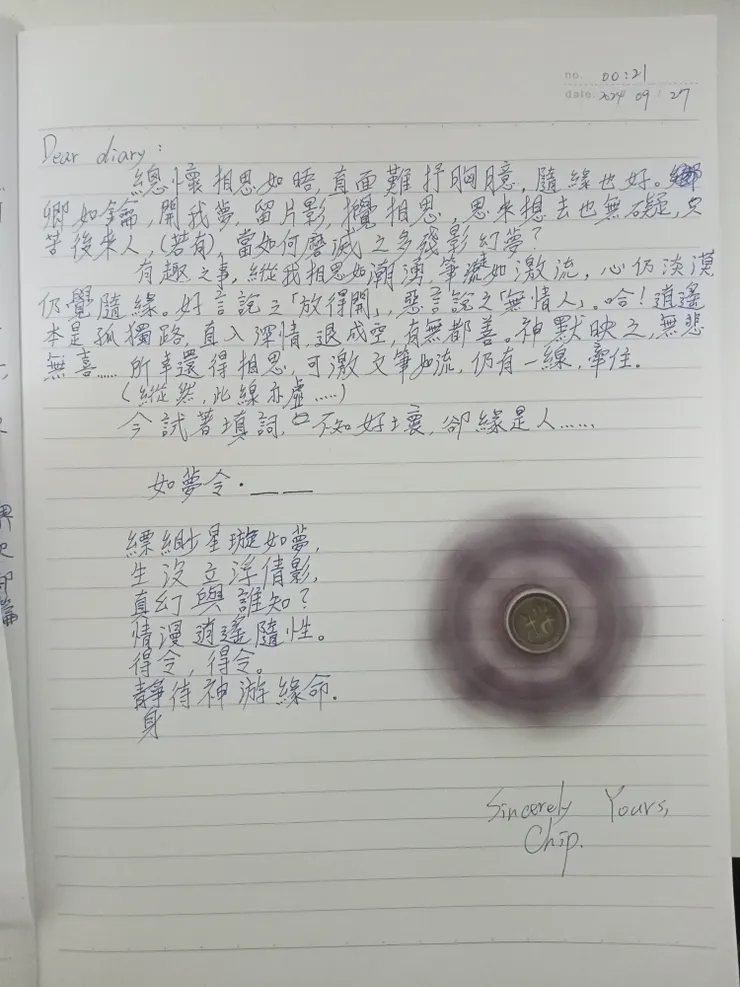 no. 00:21
date. 2024 09 / 27
Dear diary:
總懷相思如晤,直面難抒胸臆,隨緣也好。
卿如鑰,開我夢,留片影,攪相思,思來想去也無礙,只
苦後來人,(若有),當如何磨滅之多殘影幻夢?
有趣之事,縱我相思如潮湧,筆觸如激流,心仍淡漠
仍覺隨緣。好言說之「放得開」,惡言說之「無情人」。哈!逍遙
本是孤獨路,直入深情,退成空,有無都善。神默映之,無悲
無喜……所幸還得相思,可激文筆如流,仍有一線,牽住.
(縱然,此線亦虛……)
今試著填詞,不知好壞,卻緣是人……
如夢令·__ __
縹緲星璇如夢,
生沒立浮倩影,
真幻與誰知?
情漫逍遙隨性。
得令,得令。
靜待神游緣命.
身
Sincerely Yours,
Chip.